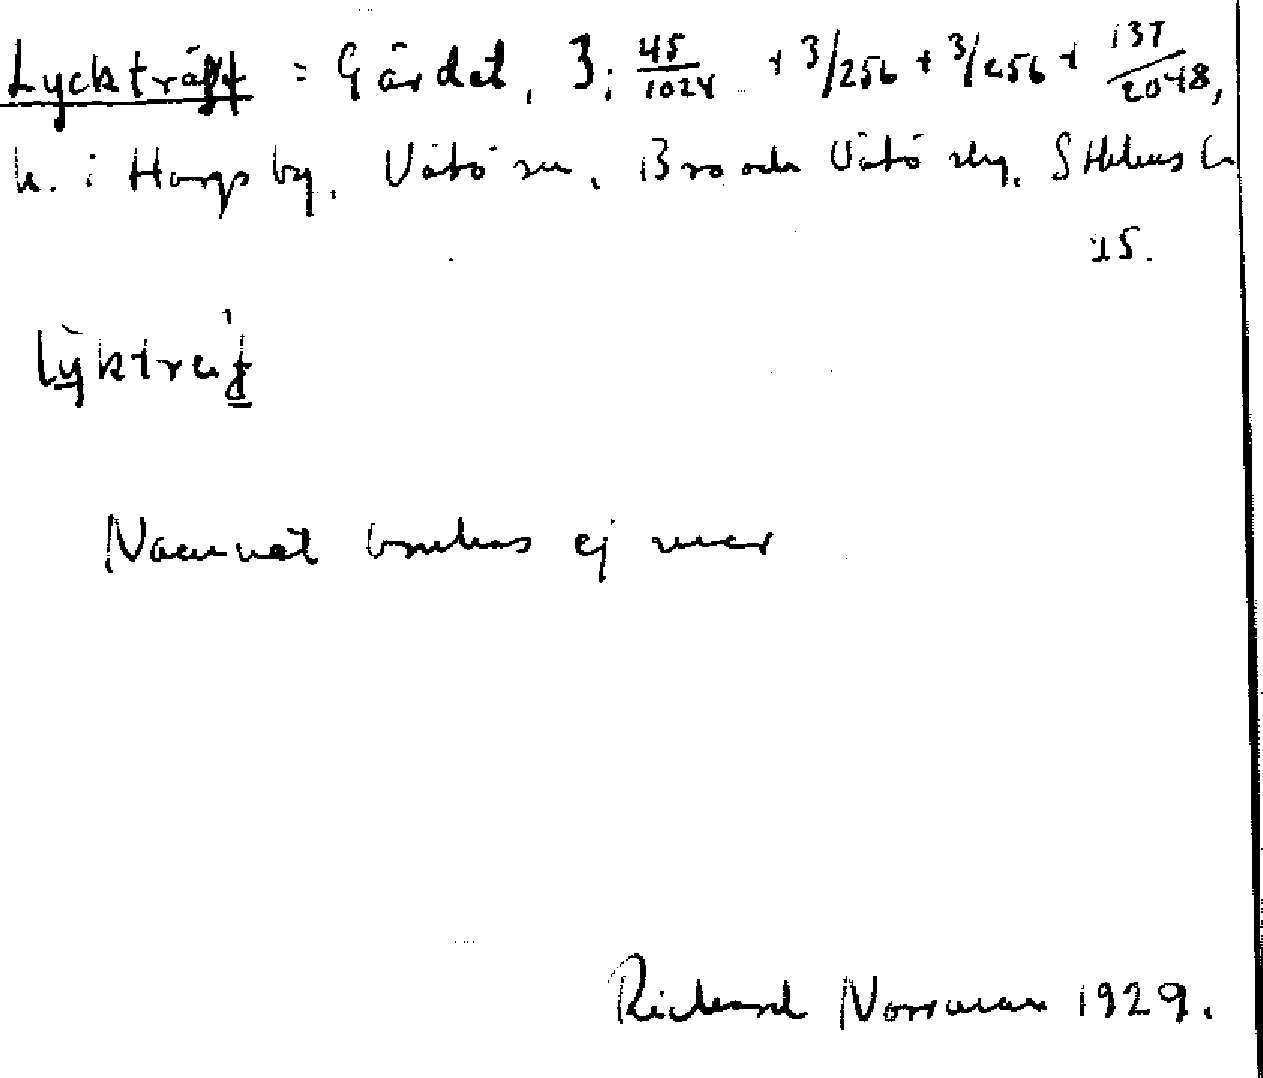 Lyckträff = Gärdet, 3; 45/1024 + 3/256 + 3/256 + 137/2048,
h. i Harps by, Vätö sn, Bro och Vätö skg, Sthlms l.
15.
Lyktref
Namnet brukas ej mer
Richard Norrman 1929.